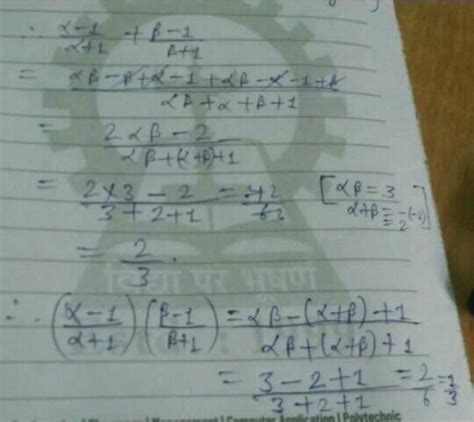 ∴ α-1/α+1 + β-1/β+1
= αβ-β+α-1+αβ-α-1+β / αβ+α+β+1
= 2αβ-2 / αβ+(α+β)+1
= 2×3-2 / 3+2+1 = [αβ=3
= 2/3.
विद्या पर भूषण
∴ (α-1/α+1)(β-1/β+1) = αβ-(α+β)+1 / αβ+(α+β)+1
= 3-2+1 / 3+2+1 = 2/6 = 1/3
Management | Computer Application | Polytechnic